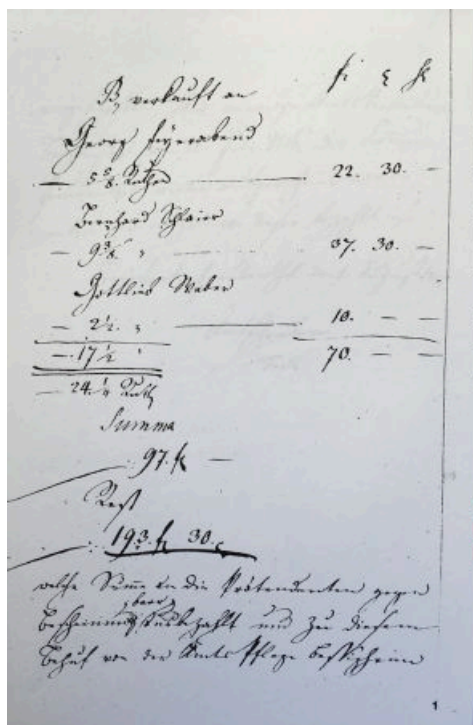 fl ξ hl
B, verkauft an
Georg Feyerabend
— 5 5/8. Ruthen — 22. 30. —
Bernhard Schlaier
— 9 3/8. " — 37. 30. —
Gottlieb Weber
— 2 1/2. " — 10. — —
— 17 1/2 " 70. — —
— 24. Ruth
Summa
: 97. f —
Rest
: 193. f 30.
welche Summe an die Prätendenten gegen
Bescheinung baar ausbezahlt und zu diesem
Behuf von der Amts Pflege Besigheim
1